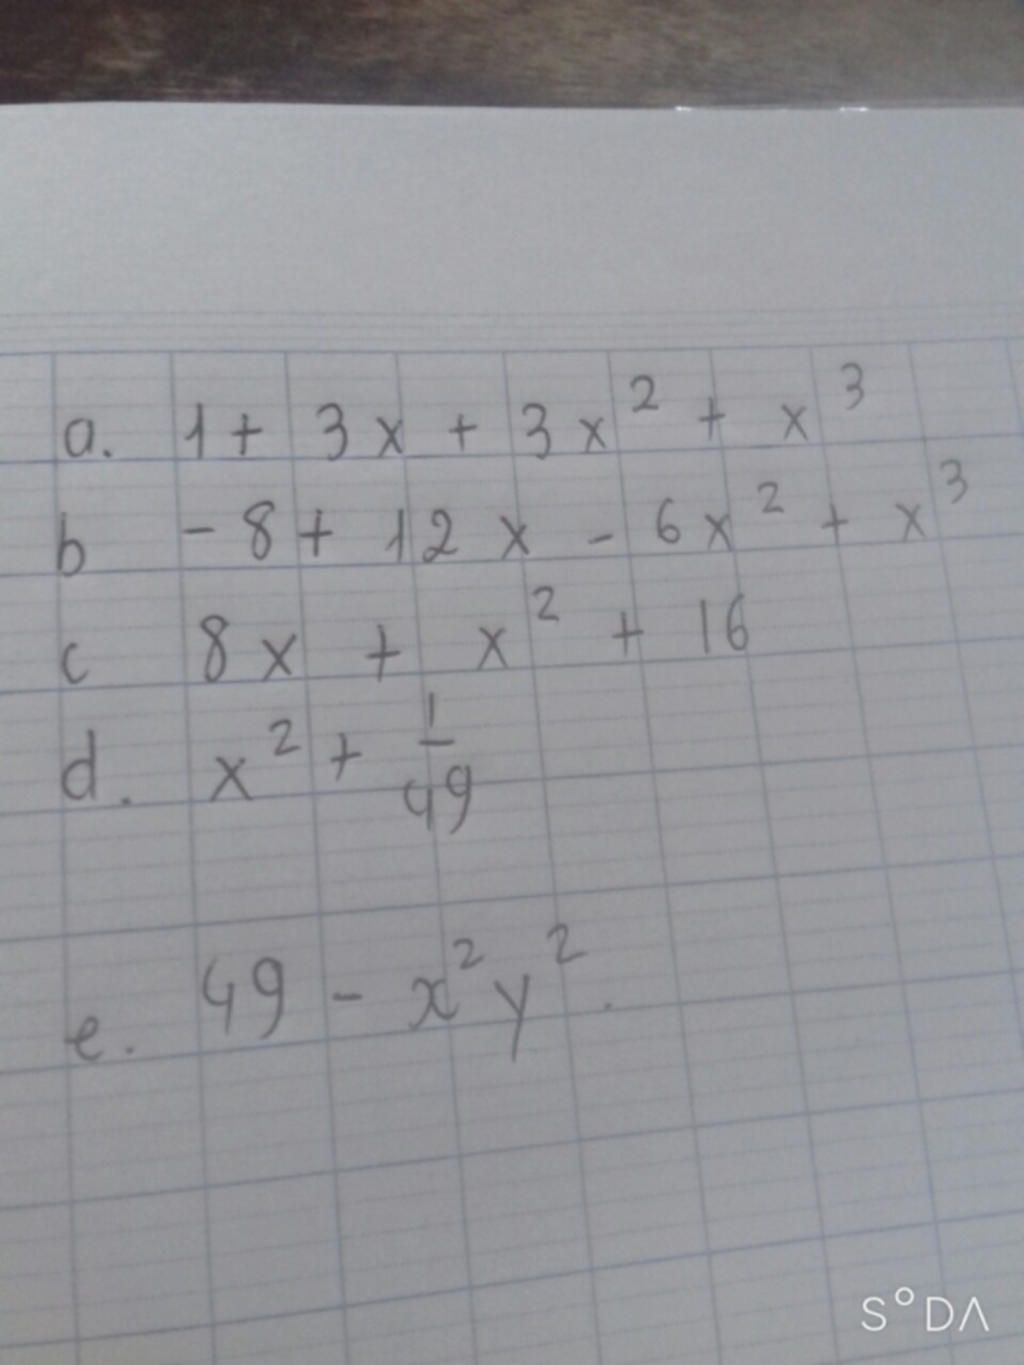 a. 1 + 3x + 3x² + x³
b - 8 + 12x - 6x² + x³
c 8x + x² + 16
d. x² + 1/49
e. 49 - x²y².
S°DΛ